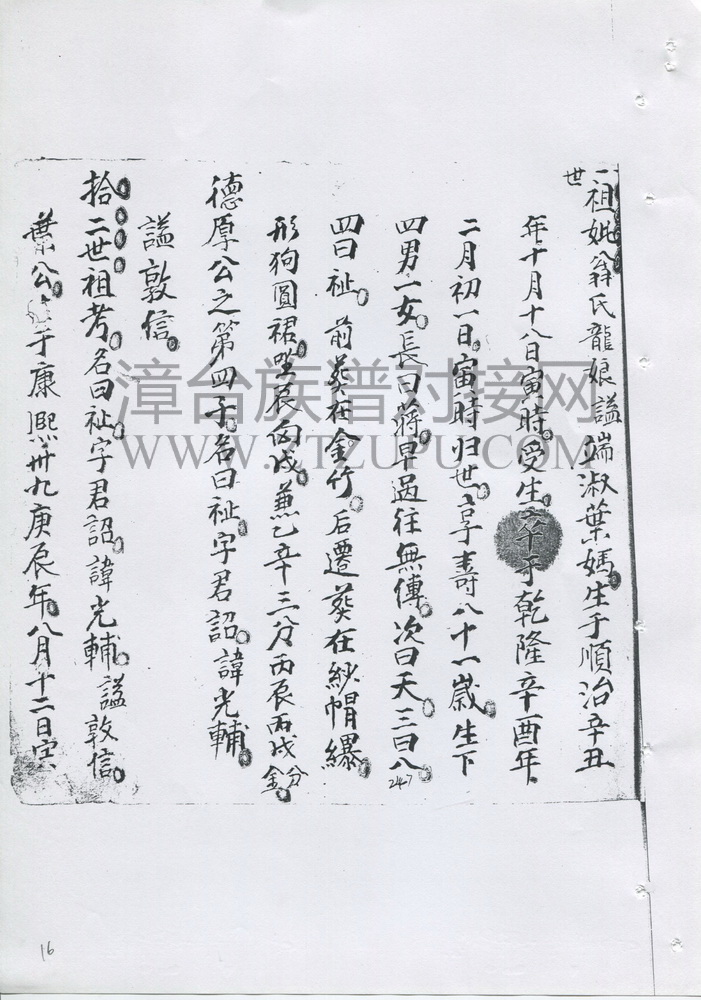 二世祖妣翁氏龍娘謚端淑葉媽生于順治辛丑
年十月十八日寅時受生 于乾隆辛酉年
二月初一日寅時归世享壽八十一歲生下
四男一女長曰蔣早過往無傳次曰天三曰八
247
四曰祉前葬在金竹后遷葬在紗帽緣
形狗圓裙坐辰向戌兼乙辛三分丙辰丙戌分金
德厚公之第四子名曰祉字君詔諱光輔
謚敦信
拾二世祖考名曰祉字君詔諱光輔謚敦信
葉公 于康熙卅九庚辰年八月十二日
漳台族谱对接网
WWW.ZTZUPU.COM
16